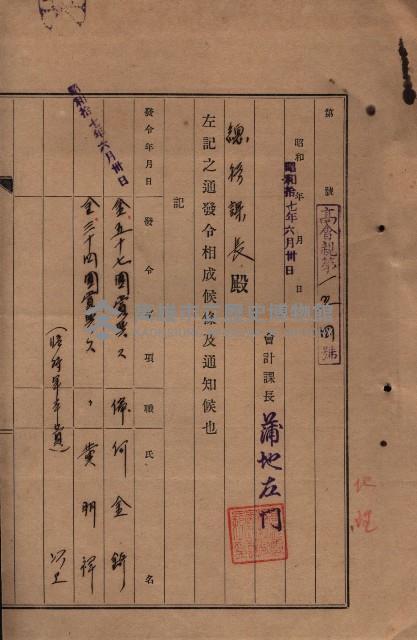 第　　號
高會親第一五四號
昭和　年　月　日
昭和拾七年六月卅日
會計課長　蒲地左門
總務課長殿
左記之通發令相成候條及通知候也
記
發令年月日　發令事項　職氏名
昭和拾七年六月卅日
金五十七圓賞與ス　傭　何金
金三十四圓賞與ス　〃　黃明祥
以上
高雄市立歷史博物館